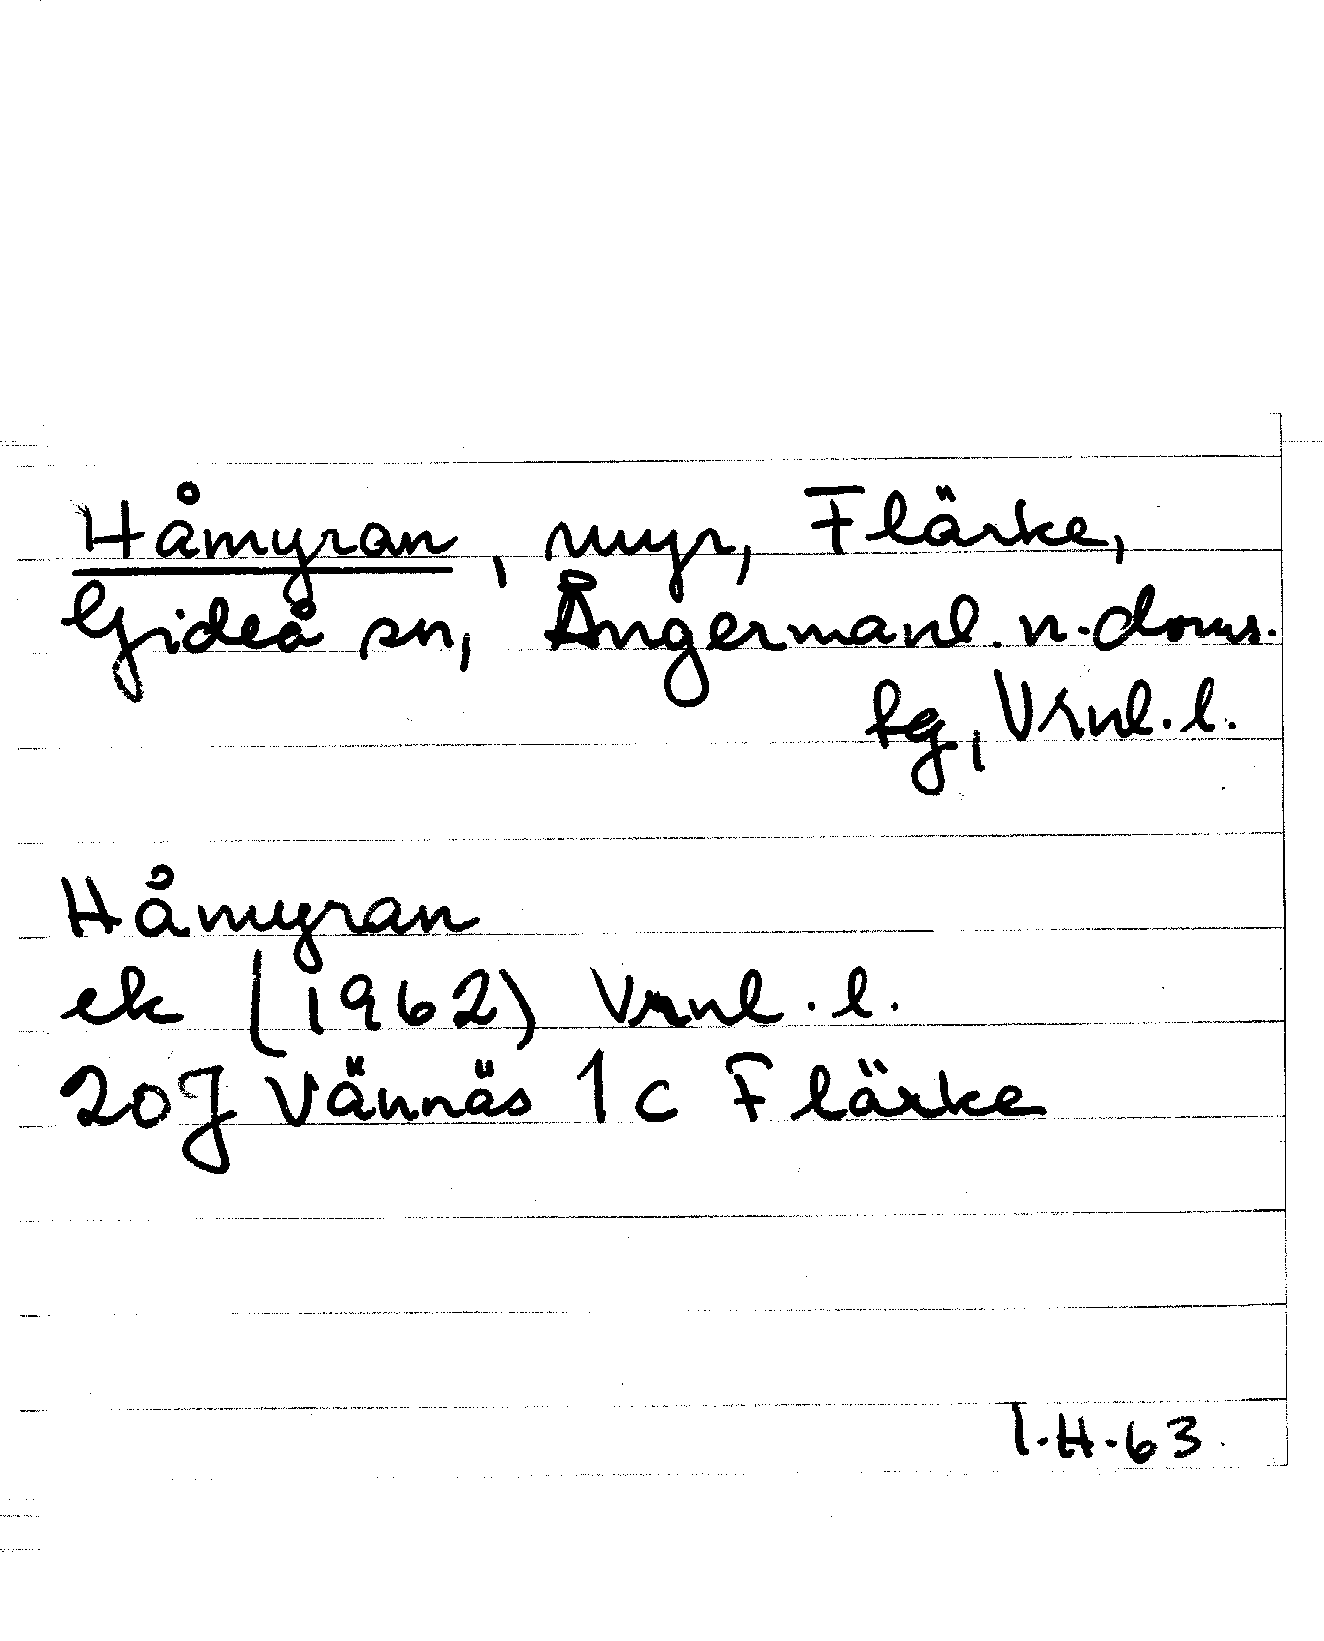 Håmyran, myr, Flärke,
Gideå sn, Ångermanl. n. doms.
sg, Vrnl. l.
Håmyran
ek (1962) Vrnl. l.
20J Vännäs 1c Flärke
I.H.63.